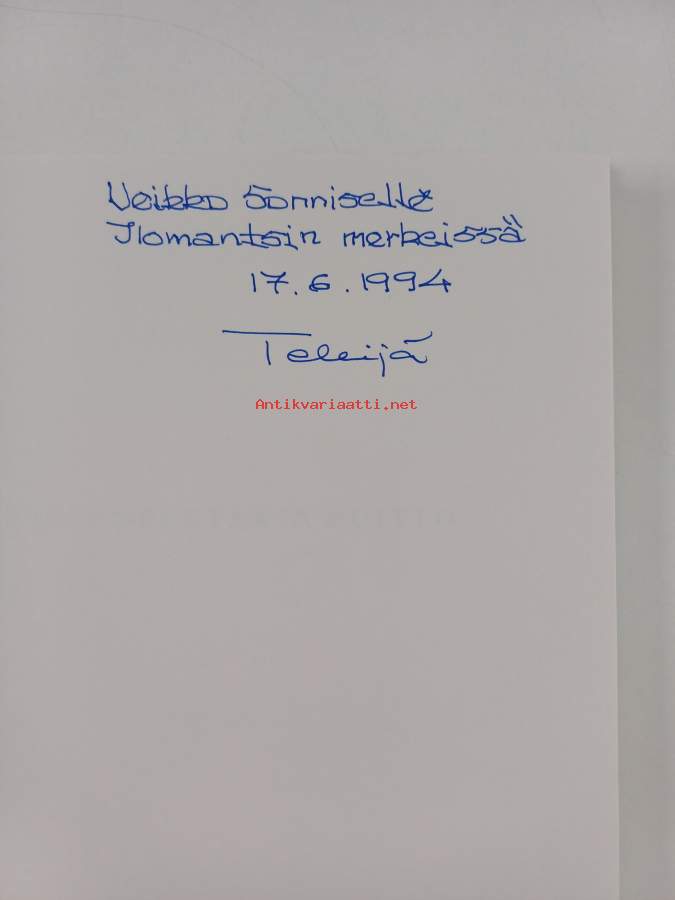 Veikko Sonniselle
Ilomantsin merkeissä
17.6.1994
Tekijä
Antikvariaatti.net